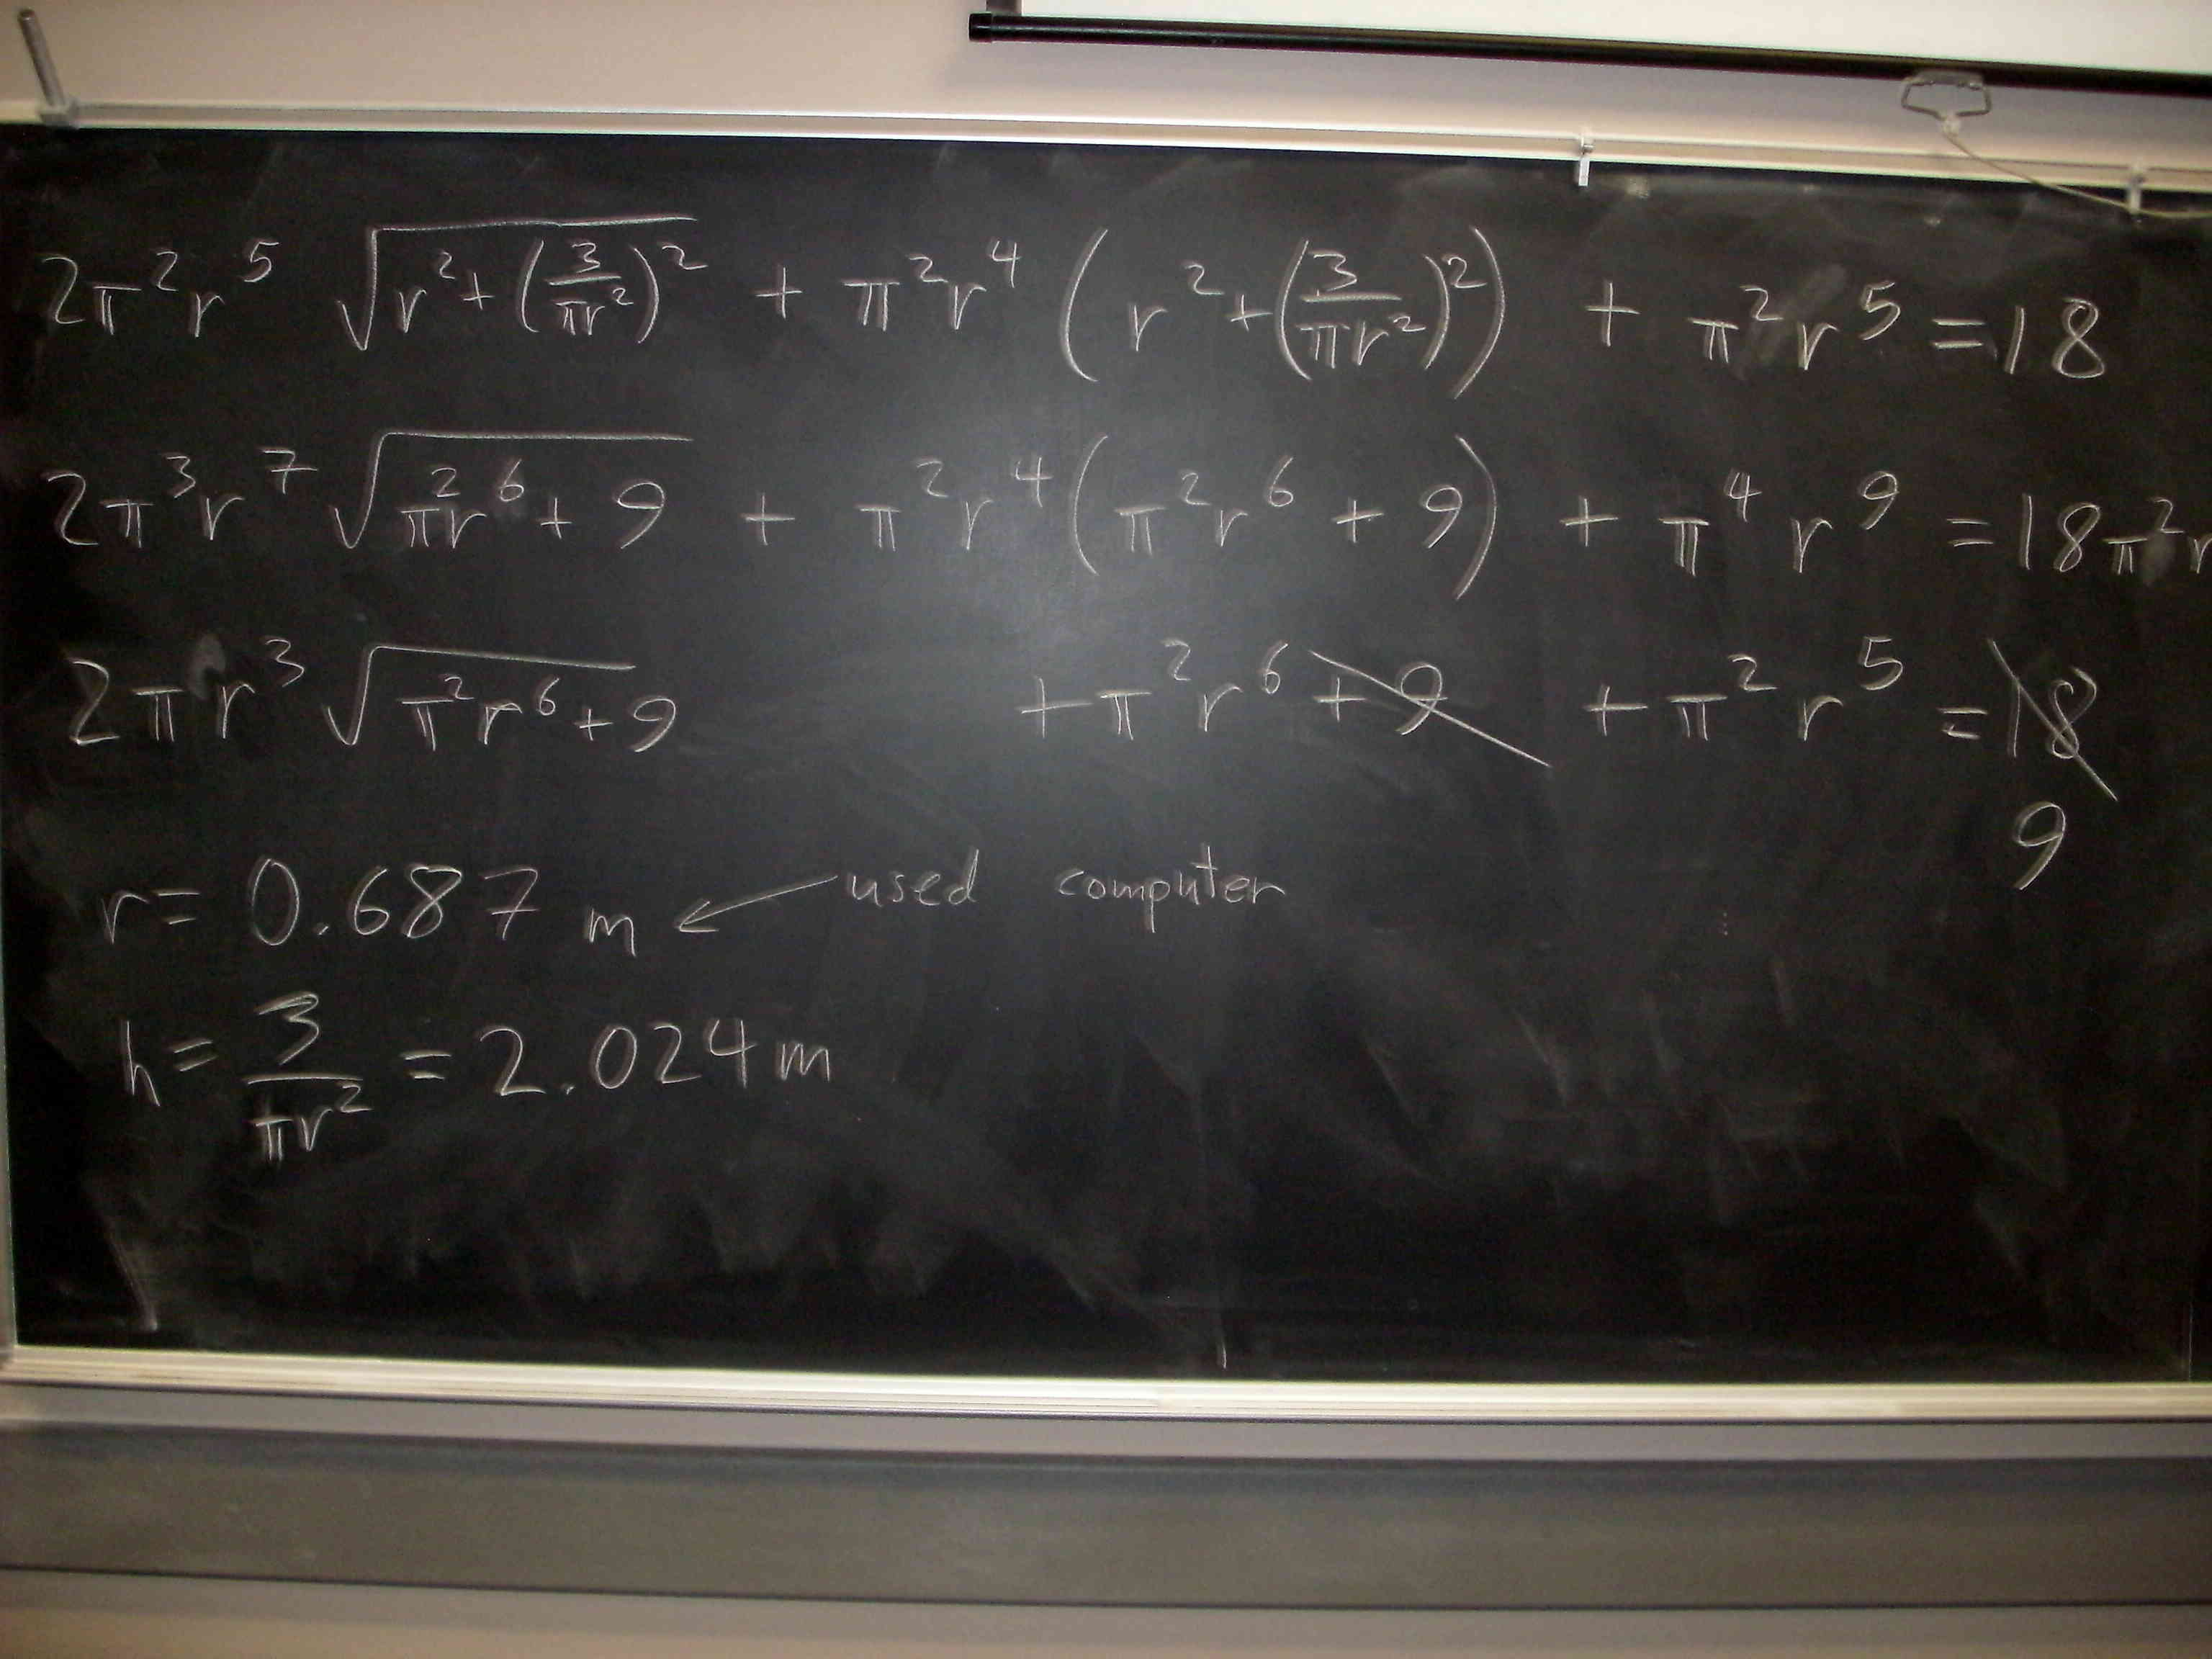 2π²r⁵ √(r²+(3/πr²)²) + π²r⁴ (r²+(3/πr²)²) + π²r⁵ = 18
2π³r⁷ √(π²r⁶+9) + π²r⁴(π²r⁶+9) + π⁴r⁹ = 18π²r
2πr³ √(π²r⁶+9) + π²r⁶ +9 + π²r⁵ = 18
9
r = 0.687 m ← used computer
h = 3/πr² = 2.024 m